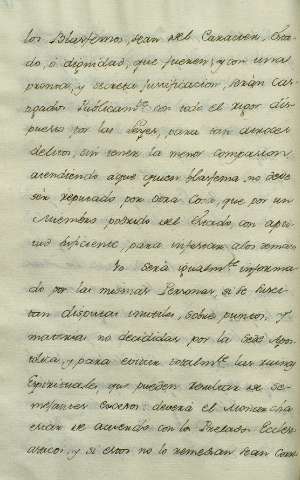 los Blasfemos, sean del Caracter, Esta-
do, ó dignidad, que fueren, y con una
pronta, y secreta justificacion, serán cas-
tigados Publicamte. con todo el rigor dis-
puesto por las Leyes, para tan atroces
delitos, sin tener la menor compasion
atendiendo aque quien blasfema no debe
sér reputado por otra Cosa, que por un
Miembro podrido del Estado, con apti-
tud suficiente, para infestar alos demas
Yo será igualmte. informa-
do por las mismas Personas, si se susci-
tan disputas inutiles, sobre puntos, y
materias no decididas por la Sede Apos-
tolica, y para evitar totalmte. las ruinas
Espirituales que pueden resultar de se-
mejantes excesos: deverá el Monarcha
estar de acuerdo con los Prelados Ecles-
asticos, y si estos no lo remedian sean